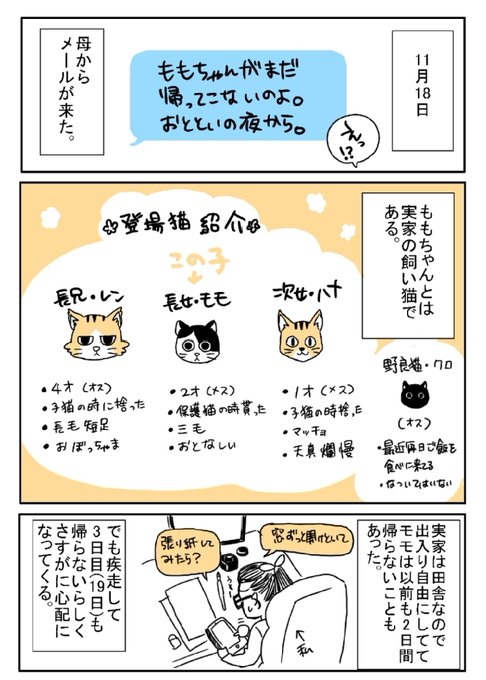 11月18日
ももちゃんがまだ
帰ってこないのよ。
おとといの夜から。
えっ!?
母から
メールが来た。
ももちゃんとは
実家の飼い猫で
ある。
登場猫紹介
この子
長兄・レン
・4才(オス)
・子猫の時に捨った
・長毛短足
・おぼっちゃま
長女・モモ
・2才(メス)
・保護猫の時貰った
・三毛
・おとなしい
次女・ハナ
・1才(メス)
・子猫の時捨った
・マッチョ
・天真爛慢
野良猫・クロ
(オス)
・最近毎日ご飯を
食べに来てる
・なついてはいない
実家は田舎なので
出入り自由にしてて
モモは以前も2日間
帰らないことも
あった。
窓ずっと開けといて
張り紙して
みたら?
私
でも疾走して
3日目(19日)も
帰らないらしく
さすがに心配に
なってくる。